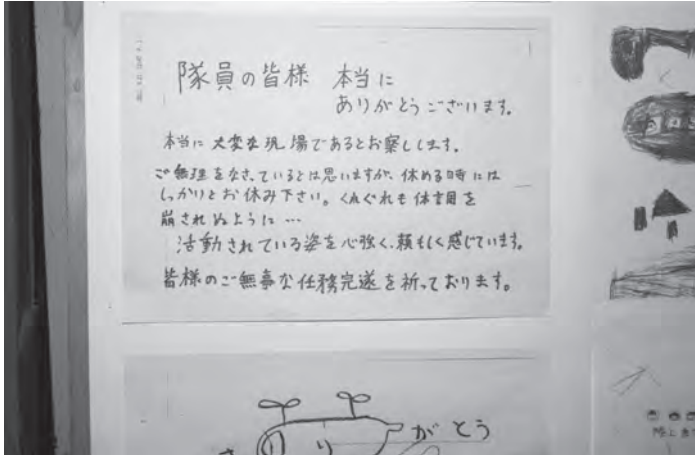 隊員の皆様 本当に
ありがとうございます。
本当に大変な現場であるとお察しします。
ご無理をなさっているとは思いますが、休める時には
しっかりとお休み下さい。くれぐれも体調を
崩されぬように…
活動されている姿を心強く、頼もしく感じています。
皆様のご無事な任務完遂を祈っております。
がとう
り
さ
陸上